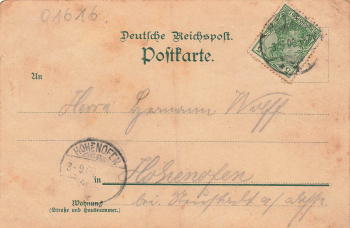 01616
Deutsche Reichspost.
Postkarte.
An
Herrn Hermann Wolff
HOHENOFEN
in Hohenofen
Wohnung
(Straße und Hausnummer.)
bei Neustadt a/Dosse